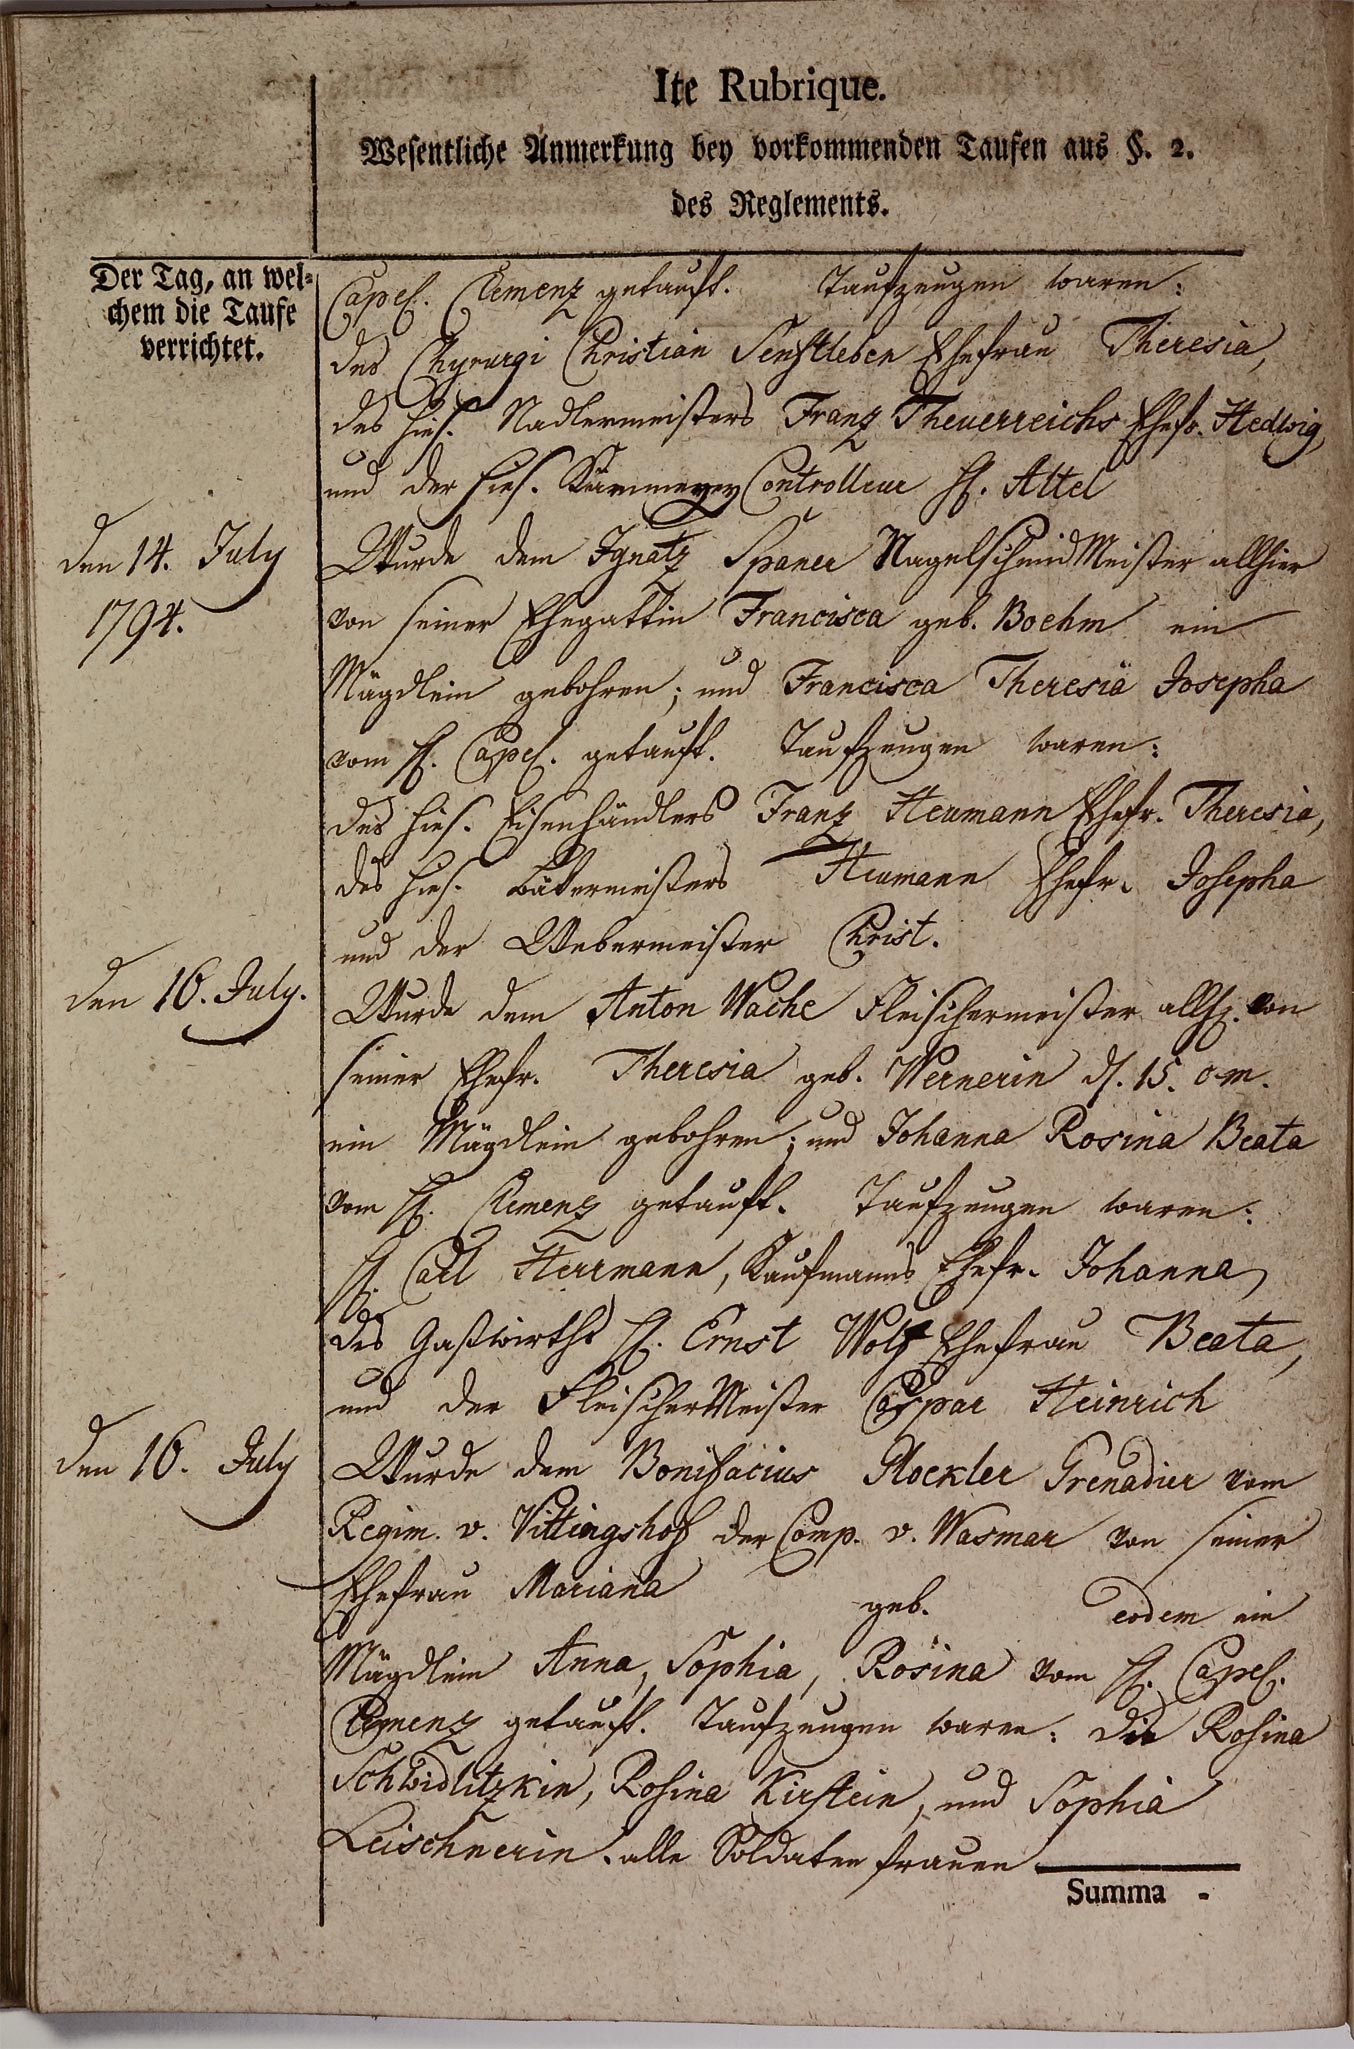 Ite Rubrique.
Wesentliche Anmerkung bey vorkommenden Taufen aus §. 2.
des Reglements.
Der Tag, an wel-
chem die Taufe
verrichtet.
Capel. Clemenz getauft. Taufzeugen waren:
des Chyrurgi Christian Senftleben Ehefrau Theresia,
des hies. Nadlermeisters Franz Theuerreichs Ehefr. Hedwig,
und der hies. Kämmerey Controlleur H. Attel
den 14. July
1794.
Wurde dem Ignatz Spaner Nagelschmid Meister allhier
von seiner Ehegattin Francisca geb. Boehm ein
Mägdlein gebohren; und Francisca Theresia Josepha
vom H. Capel. getauft. Taufzeugen waren:
des hies. Eisenhändlers Franz Heumann Ehefr. Theresia,
des hies. Bäkermeisters Heumann Ehefr. Josepha
und der Webermeister Christ.
den 16. July.
Wurde dem Anton Wache Fleischermeister allh. von
seiner Ehefr. Theresia geb. Wernerin d. 15.
ein Mägdlein gebohren; und Johanna Rosina Beata
vom H. Clemenz getauft. Taufzeugen waren:
H. Carl Herrmann, Kaufmanns Ehefr. Johanna,
des Gastwirths H. Ernst Wolf Ehefrau Beata,
und der Fleischer Meister Caspar Heinrich
den 16. July
Wurde dem Bonifacius Glockler Grenadier vom
Regim. v. Vittingshof der Comp. v. Wasmar von seiner
Ehefrau Mariana geb. eodem ein
Mägdlein Anna, Sophia, Rosina vom H. Capel.
Clemenz getauft. Taufzeugen waren: die Rosina
Schwidlitzkin, Rosina Kirstein, und Sophia
Leischnerin. alle Soldaten frauen
Summa -